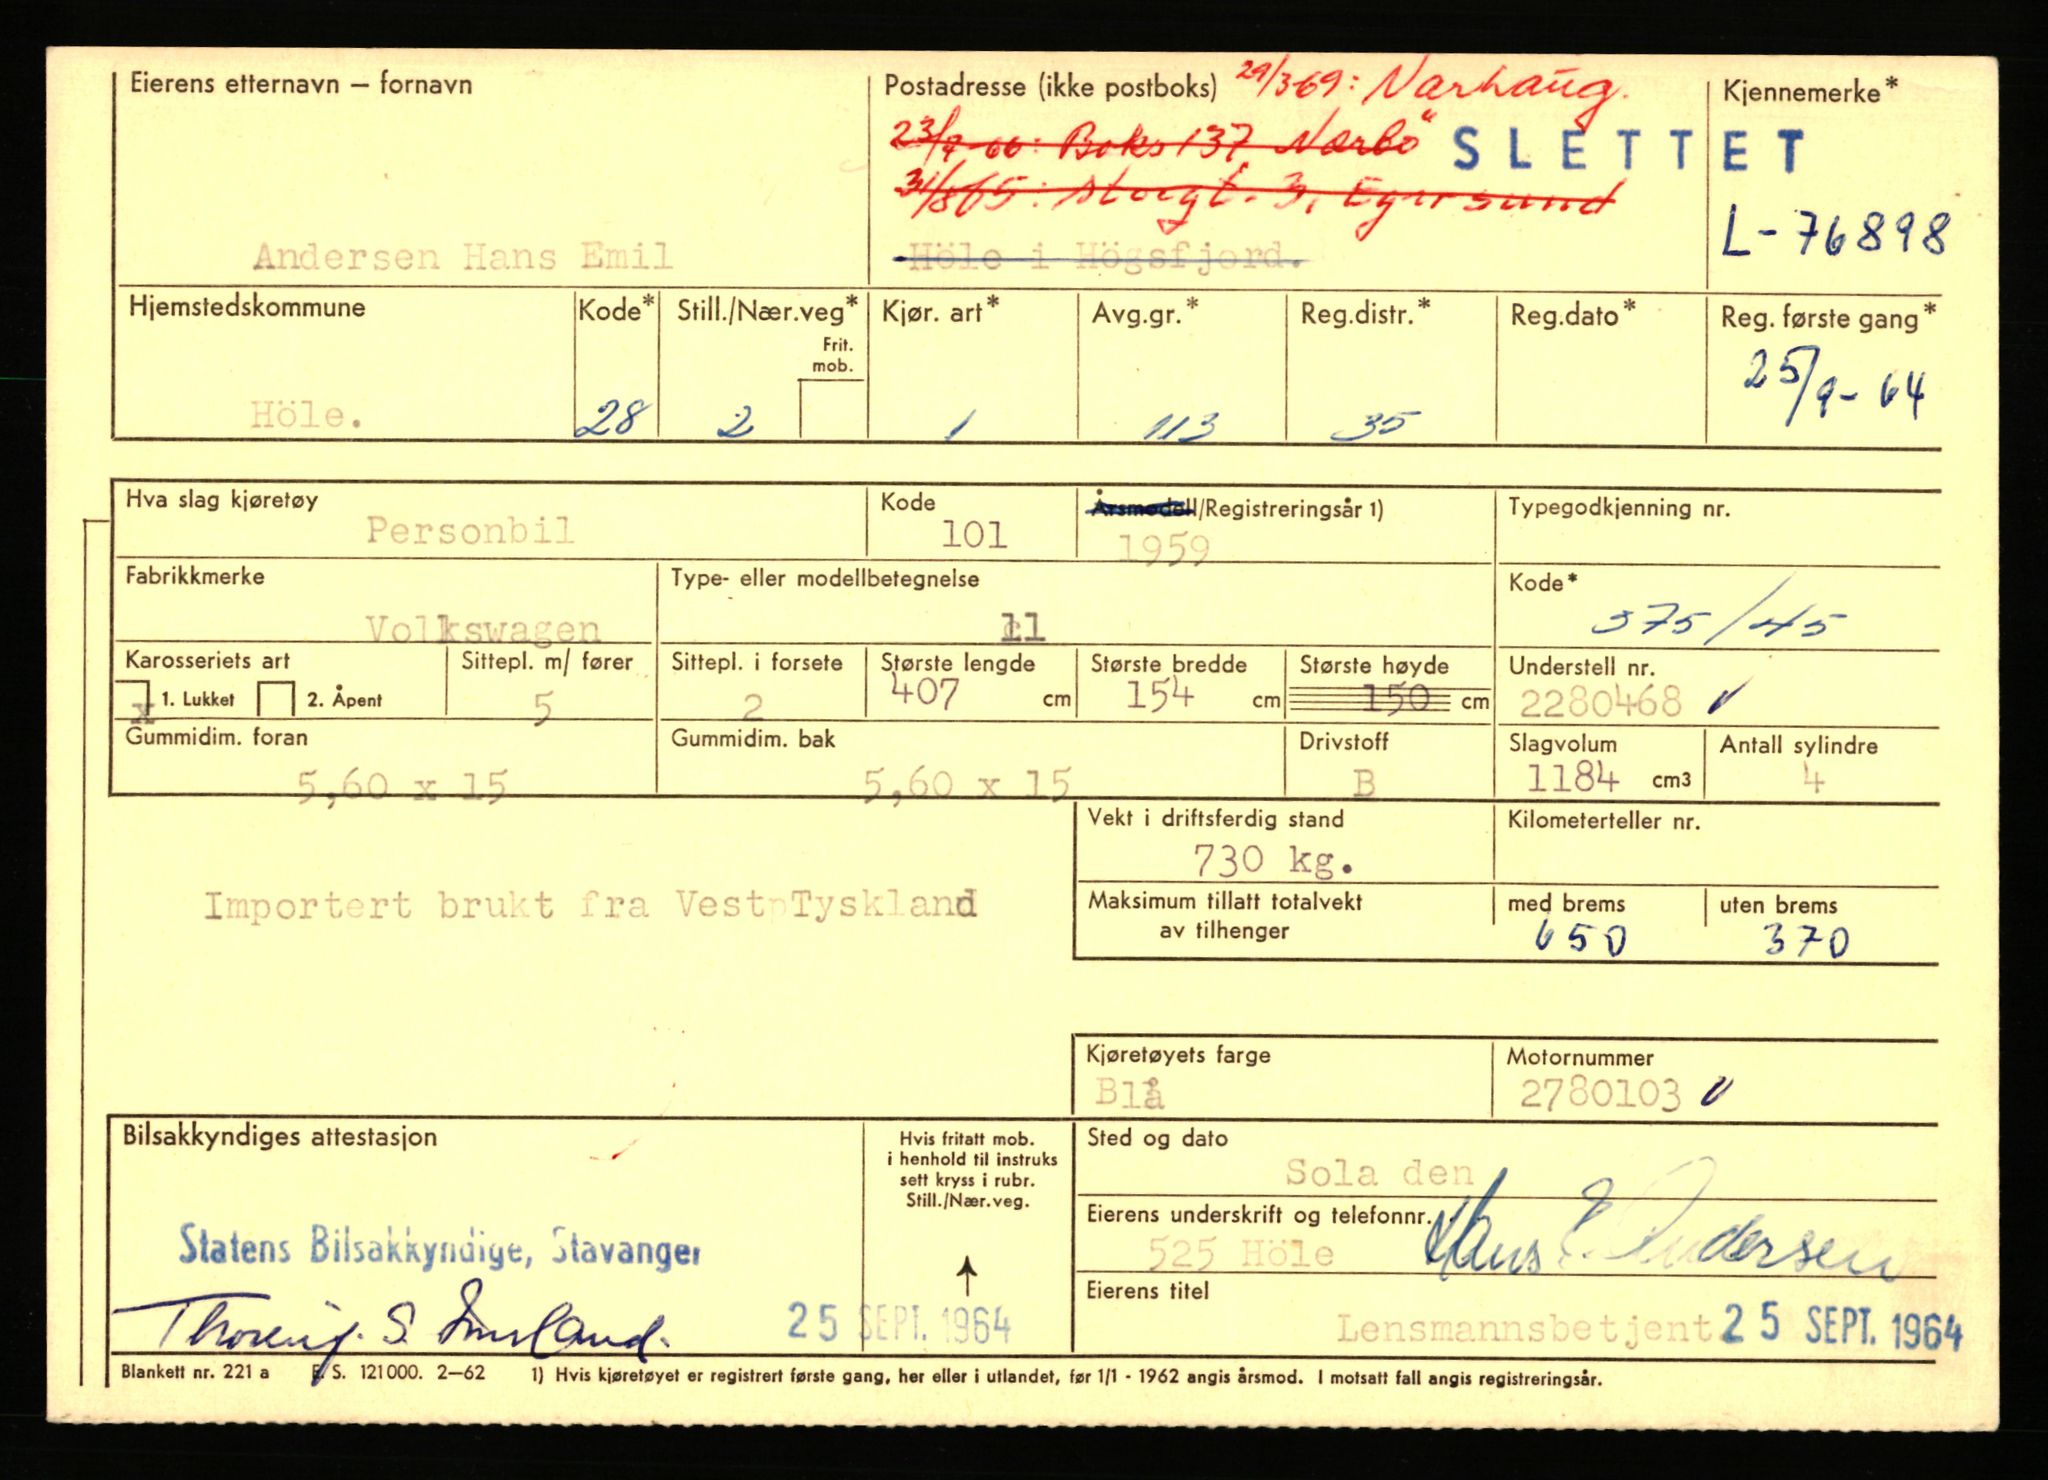 Eierens etternavn – fornavn
Postadresse (ikke postboks) 29/3-69: Varhaug.
Kjennemerke*
23/9-66: Boks 137 Nærbö
SLETTET
31/8-65: Storgt. 3, Egersund
L-76898
Andersen Hans Emil
Höle i Högsfjord.
Hjemstedskommune Kode* Still./Nær.veg* Kjør. art* Avg.gr.* Reg.distr.* Reg.dato* Reg. første gang*
Frit.
mob.
25/9-64
Höle. 28 2 1 113 35
Hva slag kjøretøy Kode Årsmodell/Registreringsår 1) Typegodkjenning nr.
Personbil 101 1959
Fabrikkmerke Type- eller modellbetegnelse Kode*
Volkswagen 11 375/45
Karosseriets art Sittepl. m/ fører Sittepl. i forsete Største lengde Største bredde Største høyde Understell nr.
x 1. Lukket 2. Åpent 5 2 407 cm 154 cm 150 cm 2280468
Gummidim. foran Gummidim. bak Drivstoff Slagvolum Antall sylindre
5,60 x 15 5,60 x 15 B 1184 cm3 4
Vekt i driftsferdig stand Kilometerteller nr.
730 kg.
Importert brukt fra VestpTyskland
Maksimum tillatt totalvekt med brems uten brems
av tilhenger 650 370
Kjøretøyets farge Motornummer
Blå 2780103
Bilsakkyndiges attestasjon
Hvis fritatt mob.
i henhold til instruks
sett kryss i rubr.
Still./Nær.veg.
Sted og dato
Sola den
Eierens underskrift og telefonnr.
525 Höle Hans E. Andersen
Statens Bilsakkyndige, Stavanger
Eierens titel
25 SEPT. 1964
Lensmannsbetjent 25 SEPT. 1964
Blankett nr. 221 a E. S. 121000. 2–62 1) Hvis kjøretøyet er registrert første gang, her eller i utlandet, før 1/1 - 1962 angis årsmod. I motsatt fall angis registreringsår.